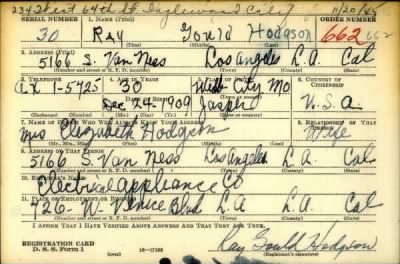 234 West 64th St. Inglewood Calif 11/20/45
SERIAL NUMBER 1. NAME (Print) ORDER NUMBER
30 Ray Gould Hodgson 662 662
(First) (Middle) (Last)
2. ADDRESS (Print)
5166 S. Van Ness Los Angeles L.A. Cal
(Number and street or R. F. D. number) (Town) (County) (State)
3. TELEPHONE 4. AGE IN YEARS 5. PLACE OF BIRTH 6. COUNTRY OF CITIZENSHIP
AX 1-5725 30 Webb City Mo
DATE OF BIRTH
Dec 24-1909 Jasper U.S.A.
7. NAME OF PERSON WHO WILL ALWAYS KNOW YOUR ADDRESS 8. RELATIONSHIP OF THAT PERSON
Mrs Elizabeth Hodgson Wife
(Mr., Mrs., Miss) (First) (Middle) (Last)
9. ADDRESS OF THAT PERSON
5166 S. Van Ness Los Angeles L.A. Cal
(Number and street or R. F. D. number) (Town) (County) (State)
10. EMPLOYER'S NAME
Electrical Appliance Co
11. PLACE OF EMPLOYMENT OR BUSINESS
726 - W - Venice Blvd LA LA. Cal.
(Number and street or R. F. D. number) (Town) (County) (State)
I AFFIRM THAT I HAVE VERIFIED ABOVE ANSWERS AND THAT THEY ARE TRUE.
REGISTRATION CARD
D. S. S. FORM 1 16-17105 Ray Gould Hodgson